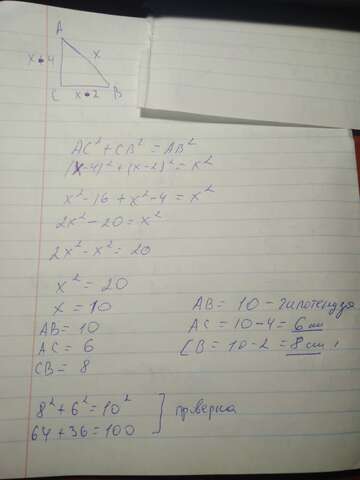 A
x-4 x
C x-2 B
AC² + CB² = AB²
(x-4)² + (x-2)² = x²
x² - 16 + x² - 4 = x²
2x² - 20 = x²
2x² - x² = 20
x² = 20
x = 10
AB = 10
AC = 6
CB = 8
AB = 10 - гипотенуза
AC = 10-4 = 6 см
CB = 10-2 = 8 см
8² + 6² = 10²
64 + 36 = 100
прверка